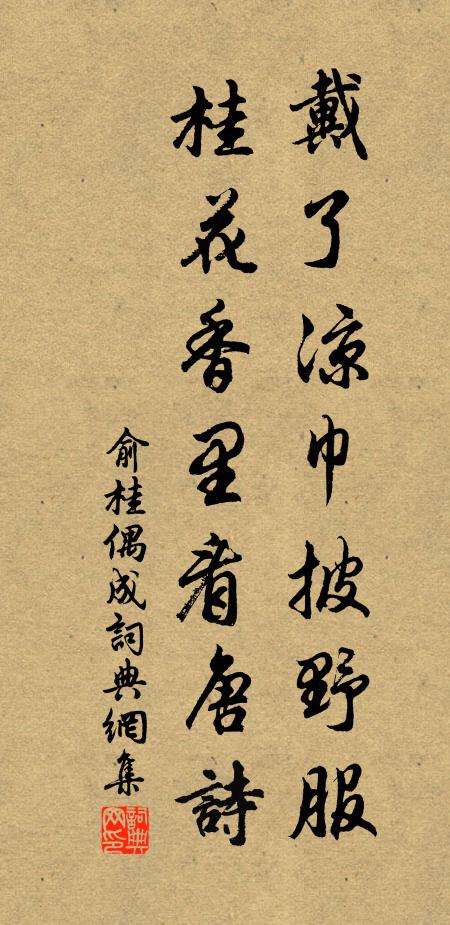 戴了凉巾披野服
桂花香里看唐詩
俞桂偶成詞典網集
詞典網印